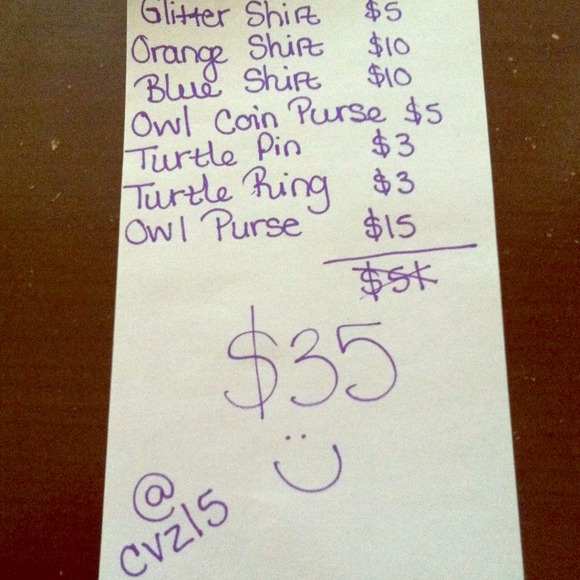 Glitter Shirt $5
Orange Shirt $10
Blue Shirt $10
Owl Coin Purse $5
Turtle Pin $3
Turtle Ring $3
Owl Purse $15
$51
$35
@
cvz15